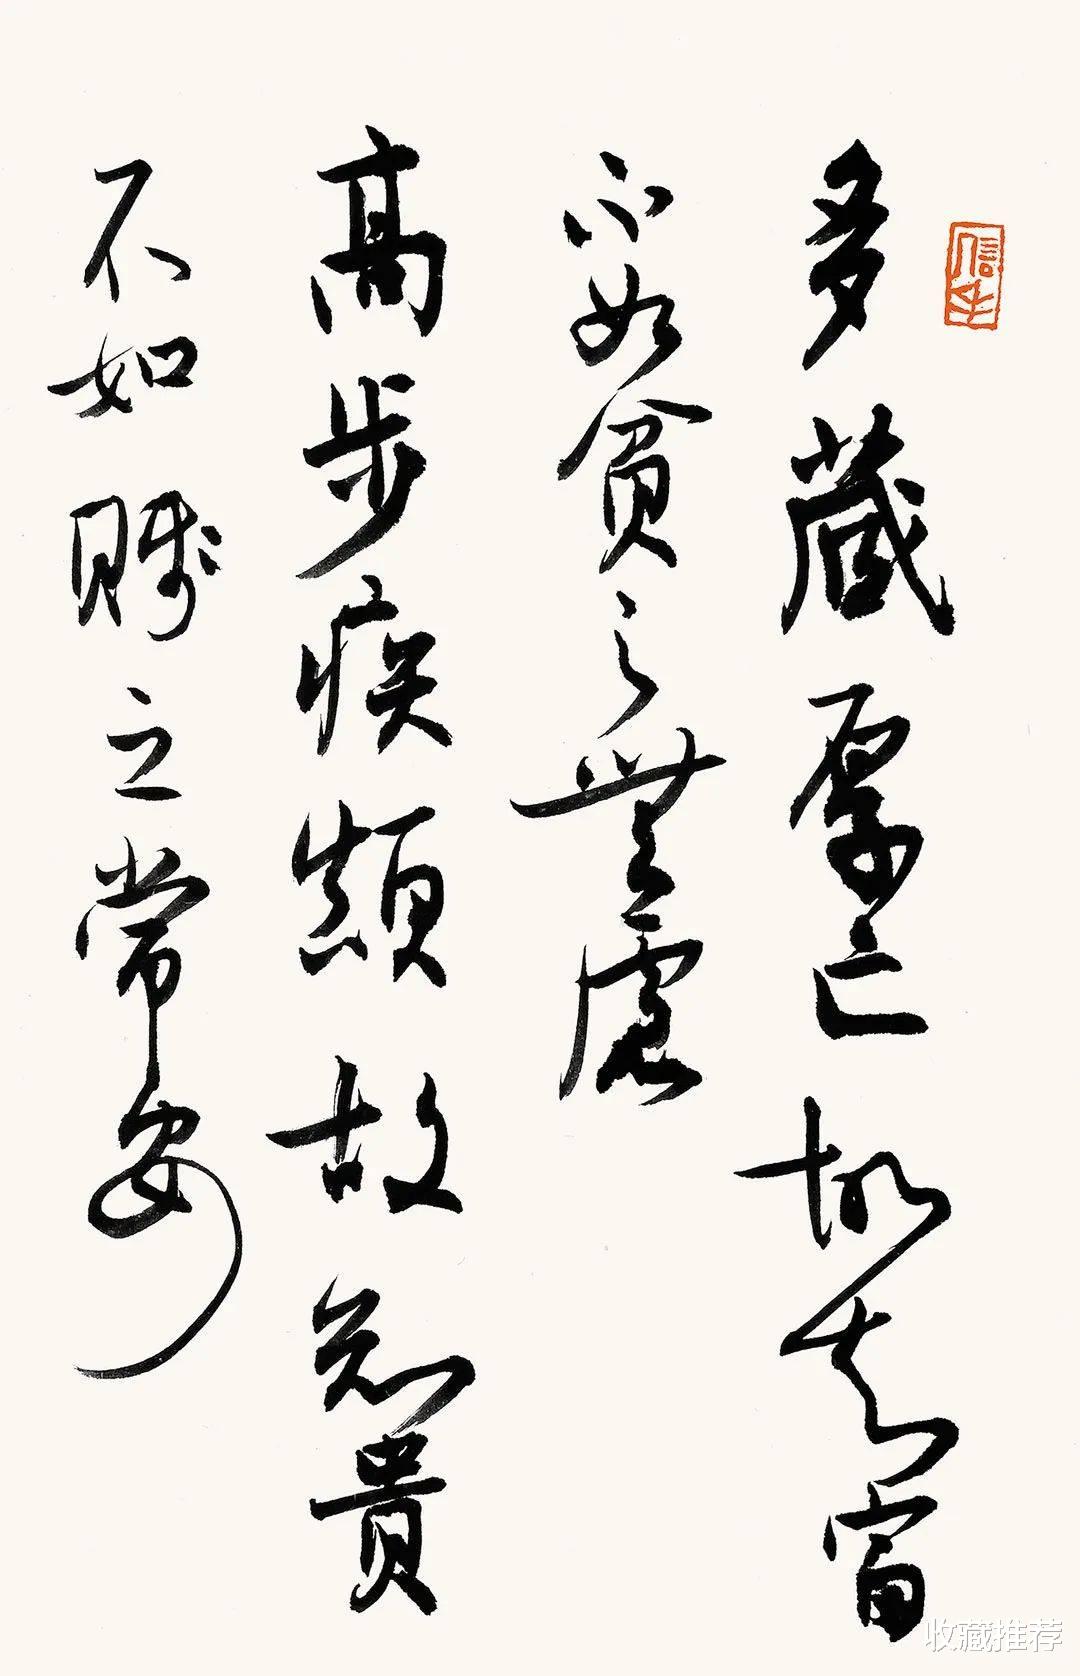 多藏厚亡故知富
不如貧之無慮
高步疾顛故知貴
不如賤之常安
收藏推荐